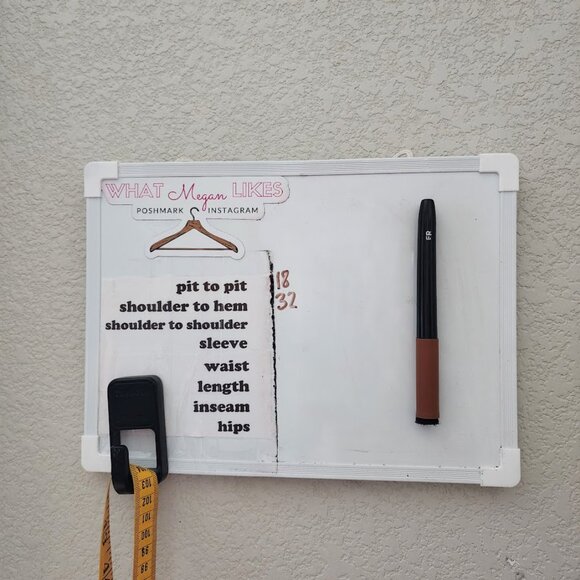 WHAT Megan LIKES
POSHMARK INSTAGRAM
pit to pit 18
shoulder to hem 32
shoulder to shoulder
sleeve
waist
length
inseam
hips
FR
103
102
101
100
99
98